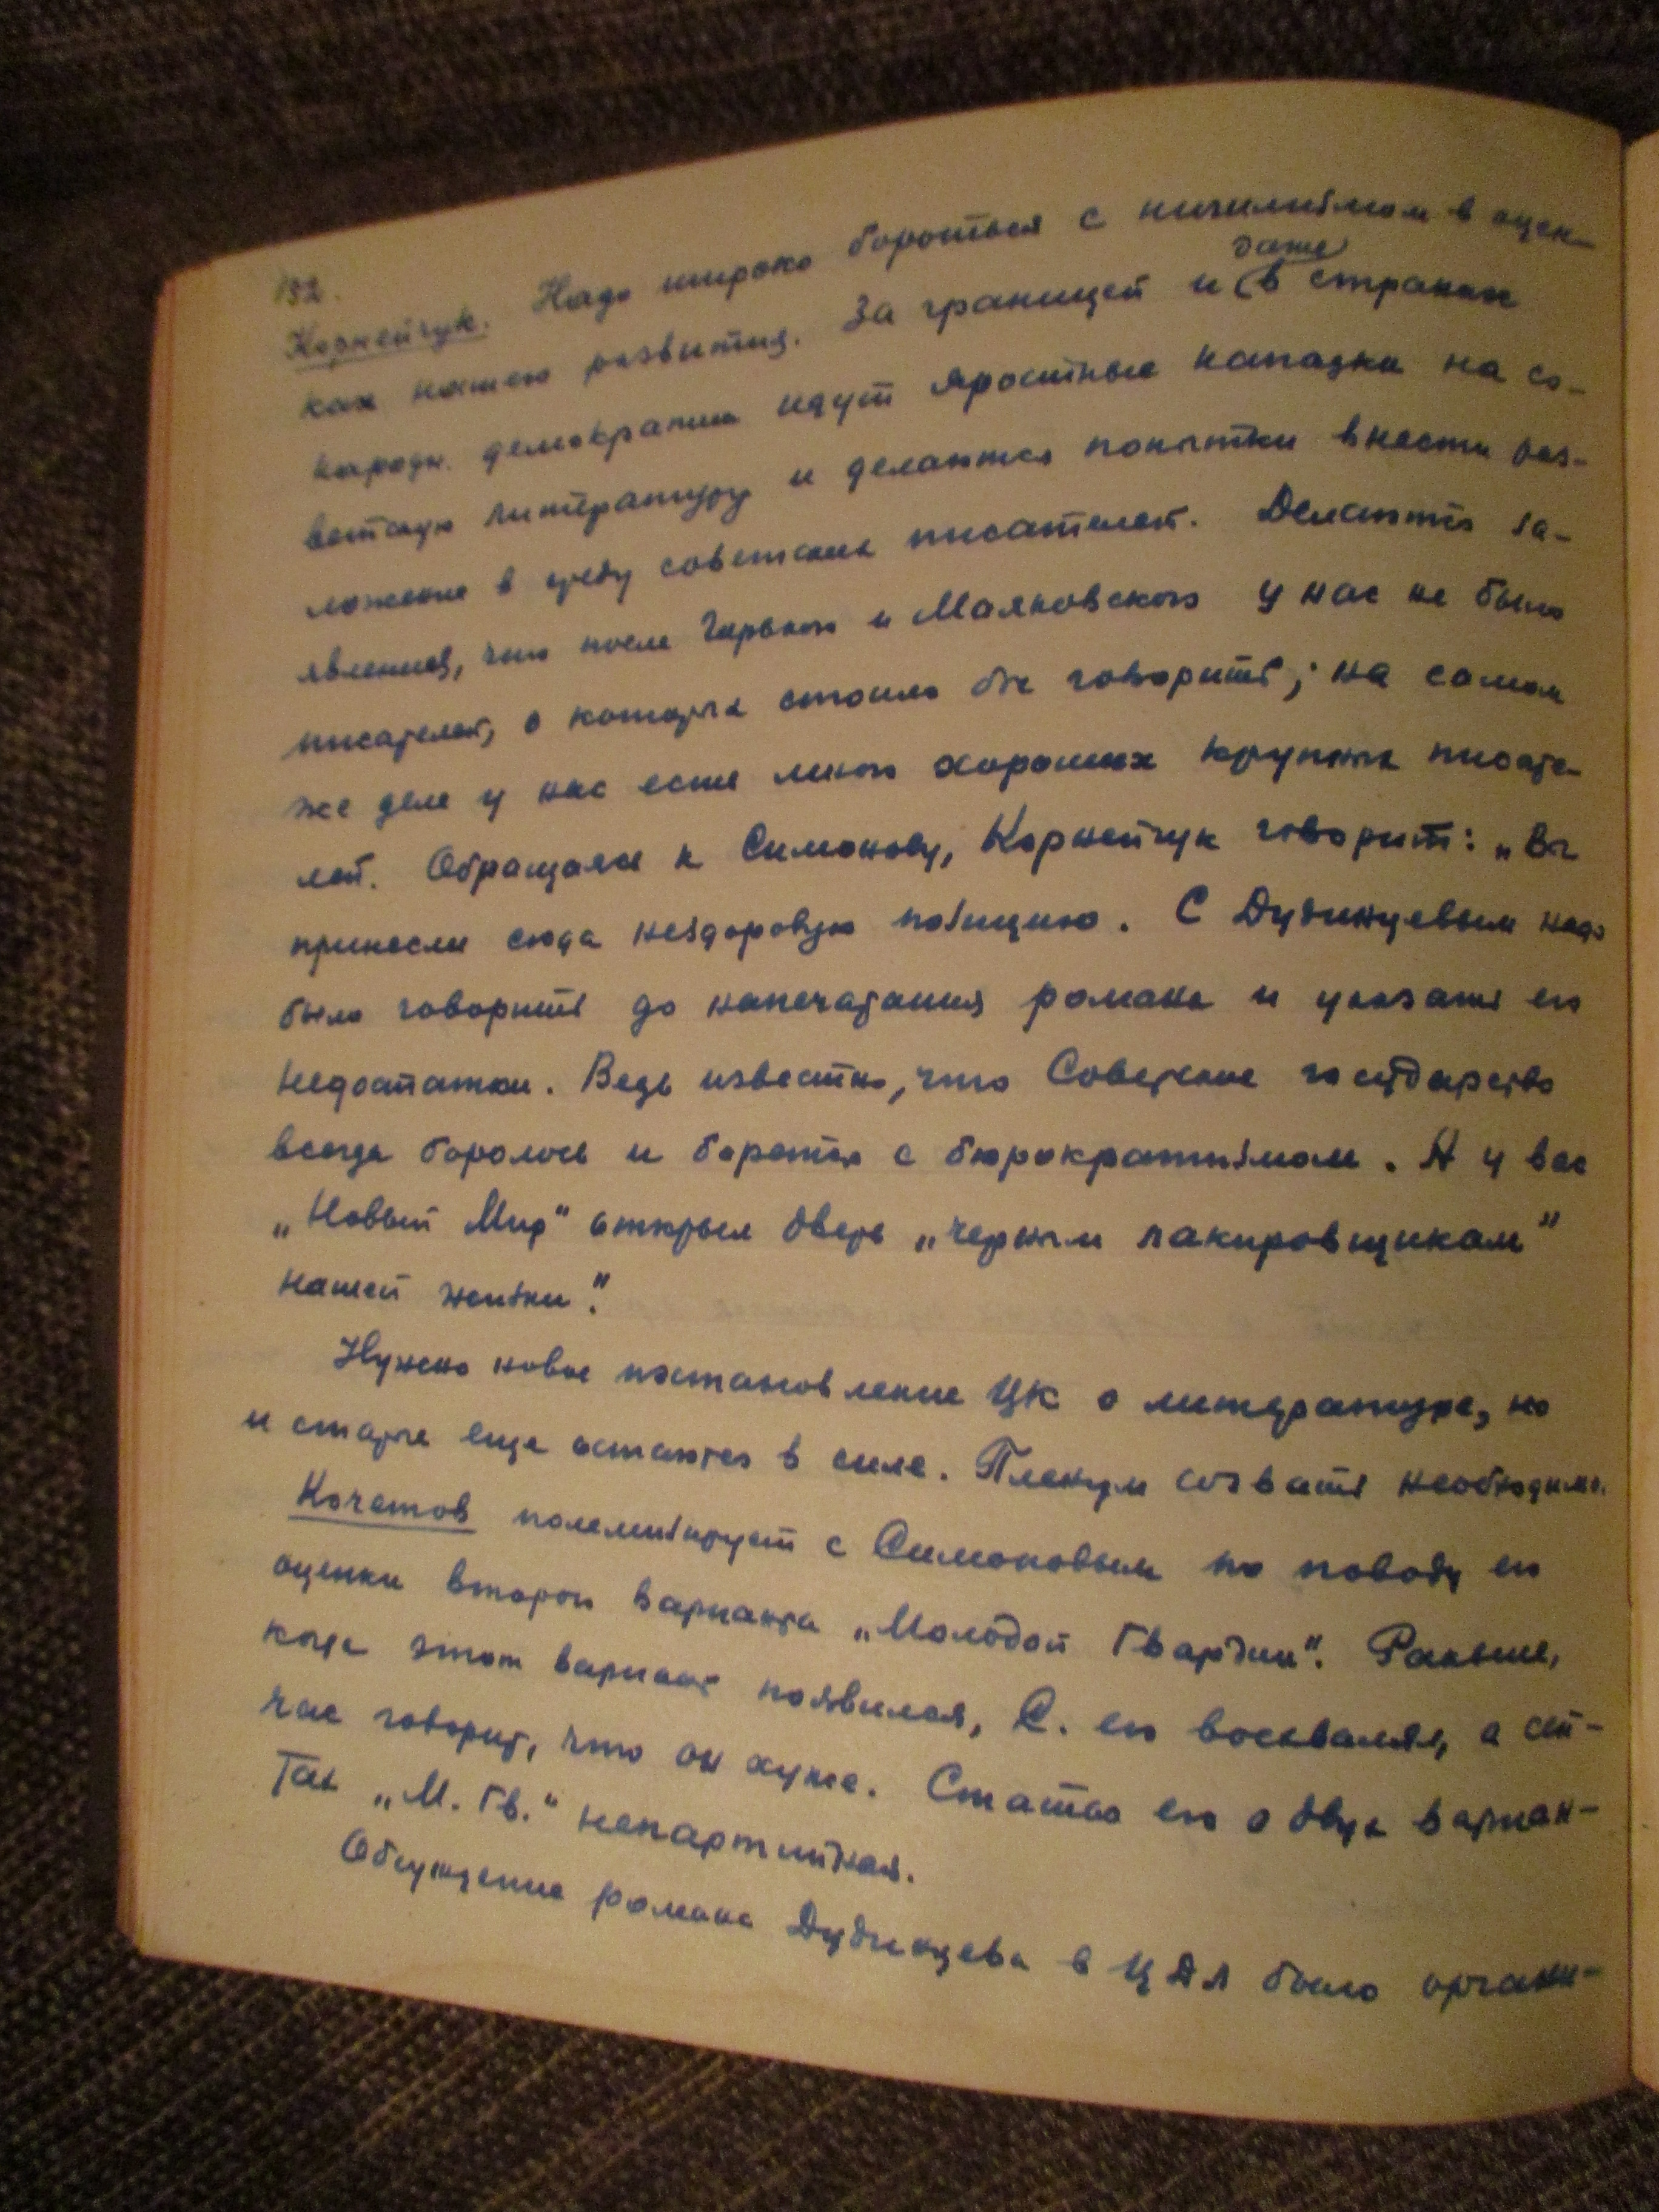 132.
Корнейчук. Надо широко бороться с нигилизмом в оцен-
ках нашего развития. За границей и (даже) в странах
народн. демократии идут яростные нападки на со-
ветскую литературу и делаются попытки внести раз-
ложение в среду советских писателей. Делаются за-
явления, что после Горького и Маяковского у нас не было
писателей, о которых стоило бы говорить; на самом
же деле у нас есть много хороших крупных писате-
лей. Обращаясь к Симонову, Корнейчук говорит: „Вы
принесли сюда нездоровую позицию. С Дудинцевым надо
было говорить до напечатания романа и указать его
недостатки. Ведь известно, что Советское государство
всегда боролось и борется с бюрократизмом. А у вас
„Новый Мир" открыл дверь „черным лакировщикам"
нашей жизни."
Нужно новое постановление ЦК о литературе, но
и старые еще остаются в силе. Пленум созвать необходимо.
Кочетов полемизирует с Симоновым по поводу его
оценки второго варианта „Молодой Гвардии". Раньше,
когда этот вариант появился, С. его восхвалял, а сей-
час говорит, что он хуже. Статья его о двух вариан-
тах „М. Гв." непартийная.
Обсуждение романа Дудинцева в ЦДЛ было органи-